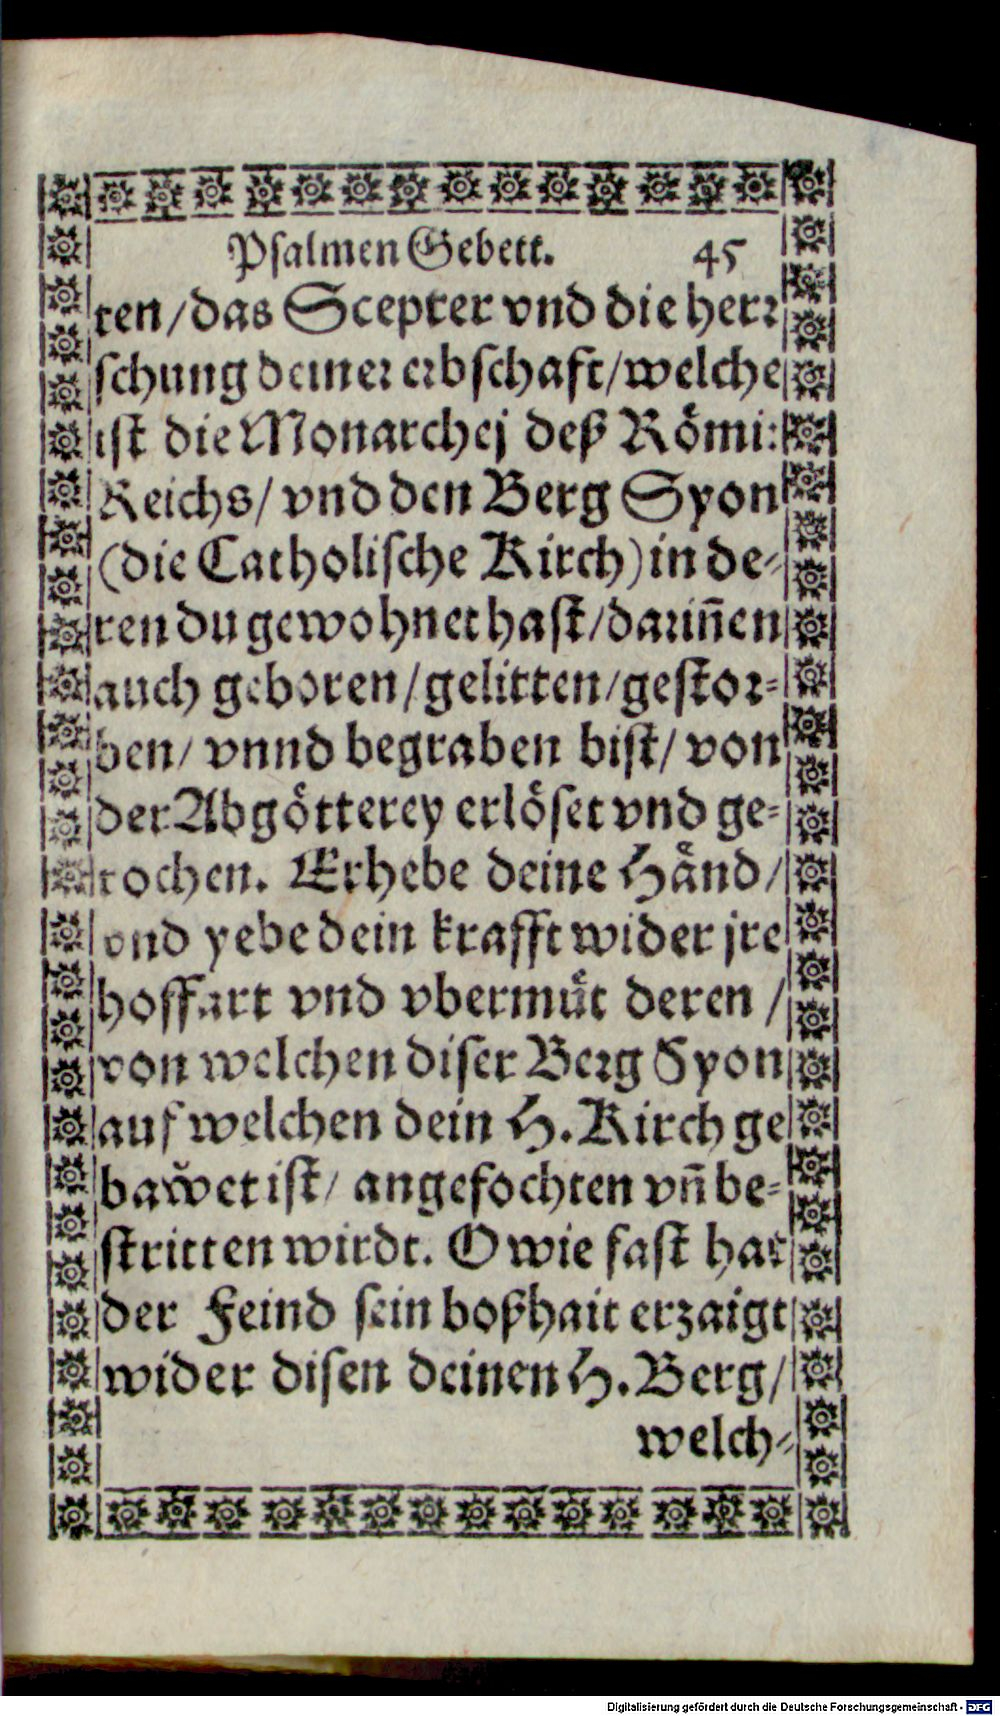 Psalmen Gebett. 45
ten/das Scepter vnd die herr
schung deiner erbschaft/welche
ist die Monarchej deß Römi:
Reichs/ vnd den Berg Syon
(die Catholische Kirch) in de-
ren du gewohnet hast/dariñen
auch geboren/gelitten/gestor-
ben/ vnnd begraben bist/ von
der Abgötterey erlöset vnd ge-
rochen. Erhebe deine Hånd/
vnd yebe dein krafft wider jre
hoffart vnd vbermůt deren /
von welchen diser Berg Syon
auf welchen dein H. Kirch ge
bawet ist/ angefochten vñ be-
stritten wirdt. O wie fast hat
der Feind sein boßhait erzaigt
wider disen deinen H. Berg/
welch-
Digitalisierung gefördert durch die Deutsche Forschungsgemeinschaft - DFG